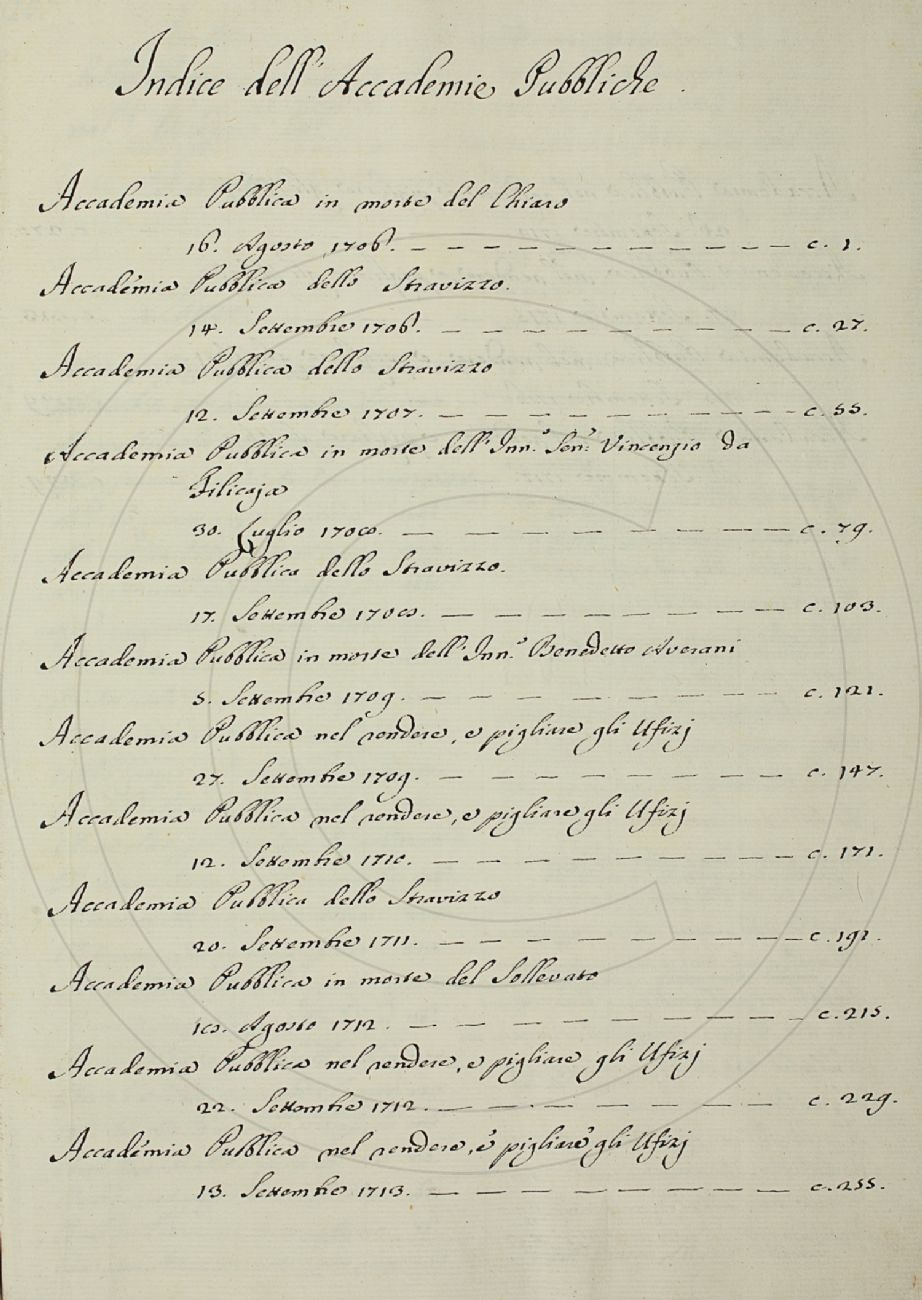 Indice dell'Accademie Pubbliche.
Accademia Pubblica in morte del Chiaro
16. Agosto 1706. — — — — — — — — — — — — c. 1.
Accademia Pubblica dello Stravizzo.
14. Settembre 1706. — — — — — — — — — — — c. 27.
Accademia Pubblica dello Stravizzo
12. Settembre 1707. — — — — — — — — — — — c. 55.
Accademia Pubblica in morte dell'Inn.º Sen.e Vincenzio da
Filicaja
30. Luglio 1708. — — — — — — — — — — — c. 79.
Accademia Pubblica dello Stravizzo.
17. Settembre 1708. — — — — — — — — — — c. 103.
Accademia Pubblica in morte dell'Inn.º Benedetto Averani
5. Settembre 1709. — — — — — — — — — — c. 121.
Accademia Pubblica nel rendere, e pigliare gli Ufizj
27. Settembre 1709. — — — — — — — — — c. 147.
Accademia Pubblica nel rendere, e pigliare gli Ufizj
12. Settembre 1710. — — — — — — — — — — c. 171.
Accademia Pubblica dello Stravizzo
20. Settembre 1711. — — — — — — — — — — c. 191.
Accademia Pubblica in morte del Sollevato
18. Agosto 1712. — — — — — — — — — — — c. 215.
Accademia Pubblica nel rendere, e pigliare gli Ufizj
22. Settembre 1712. — — — — — — — — — c. 229.
Accademia Pubblica nel rendere, e pigliare gli Ufizj
13. Settembre 1713. — — — — — — — — — c. 255.